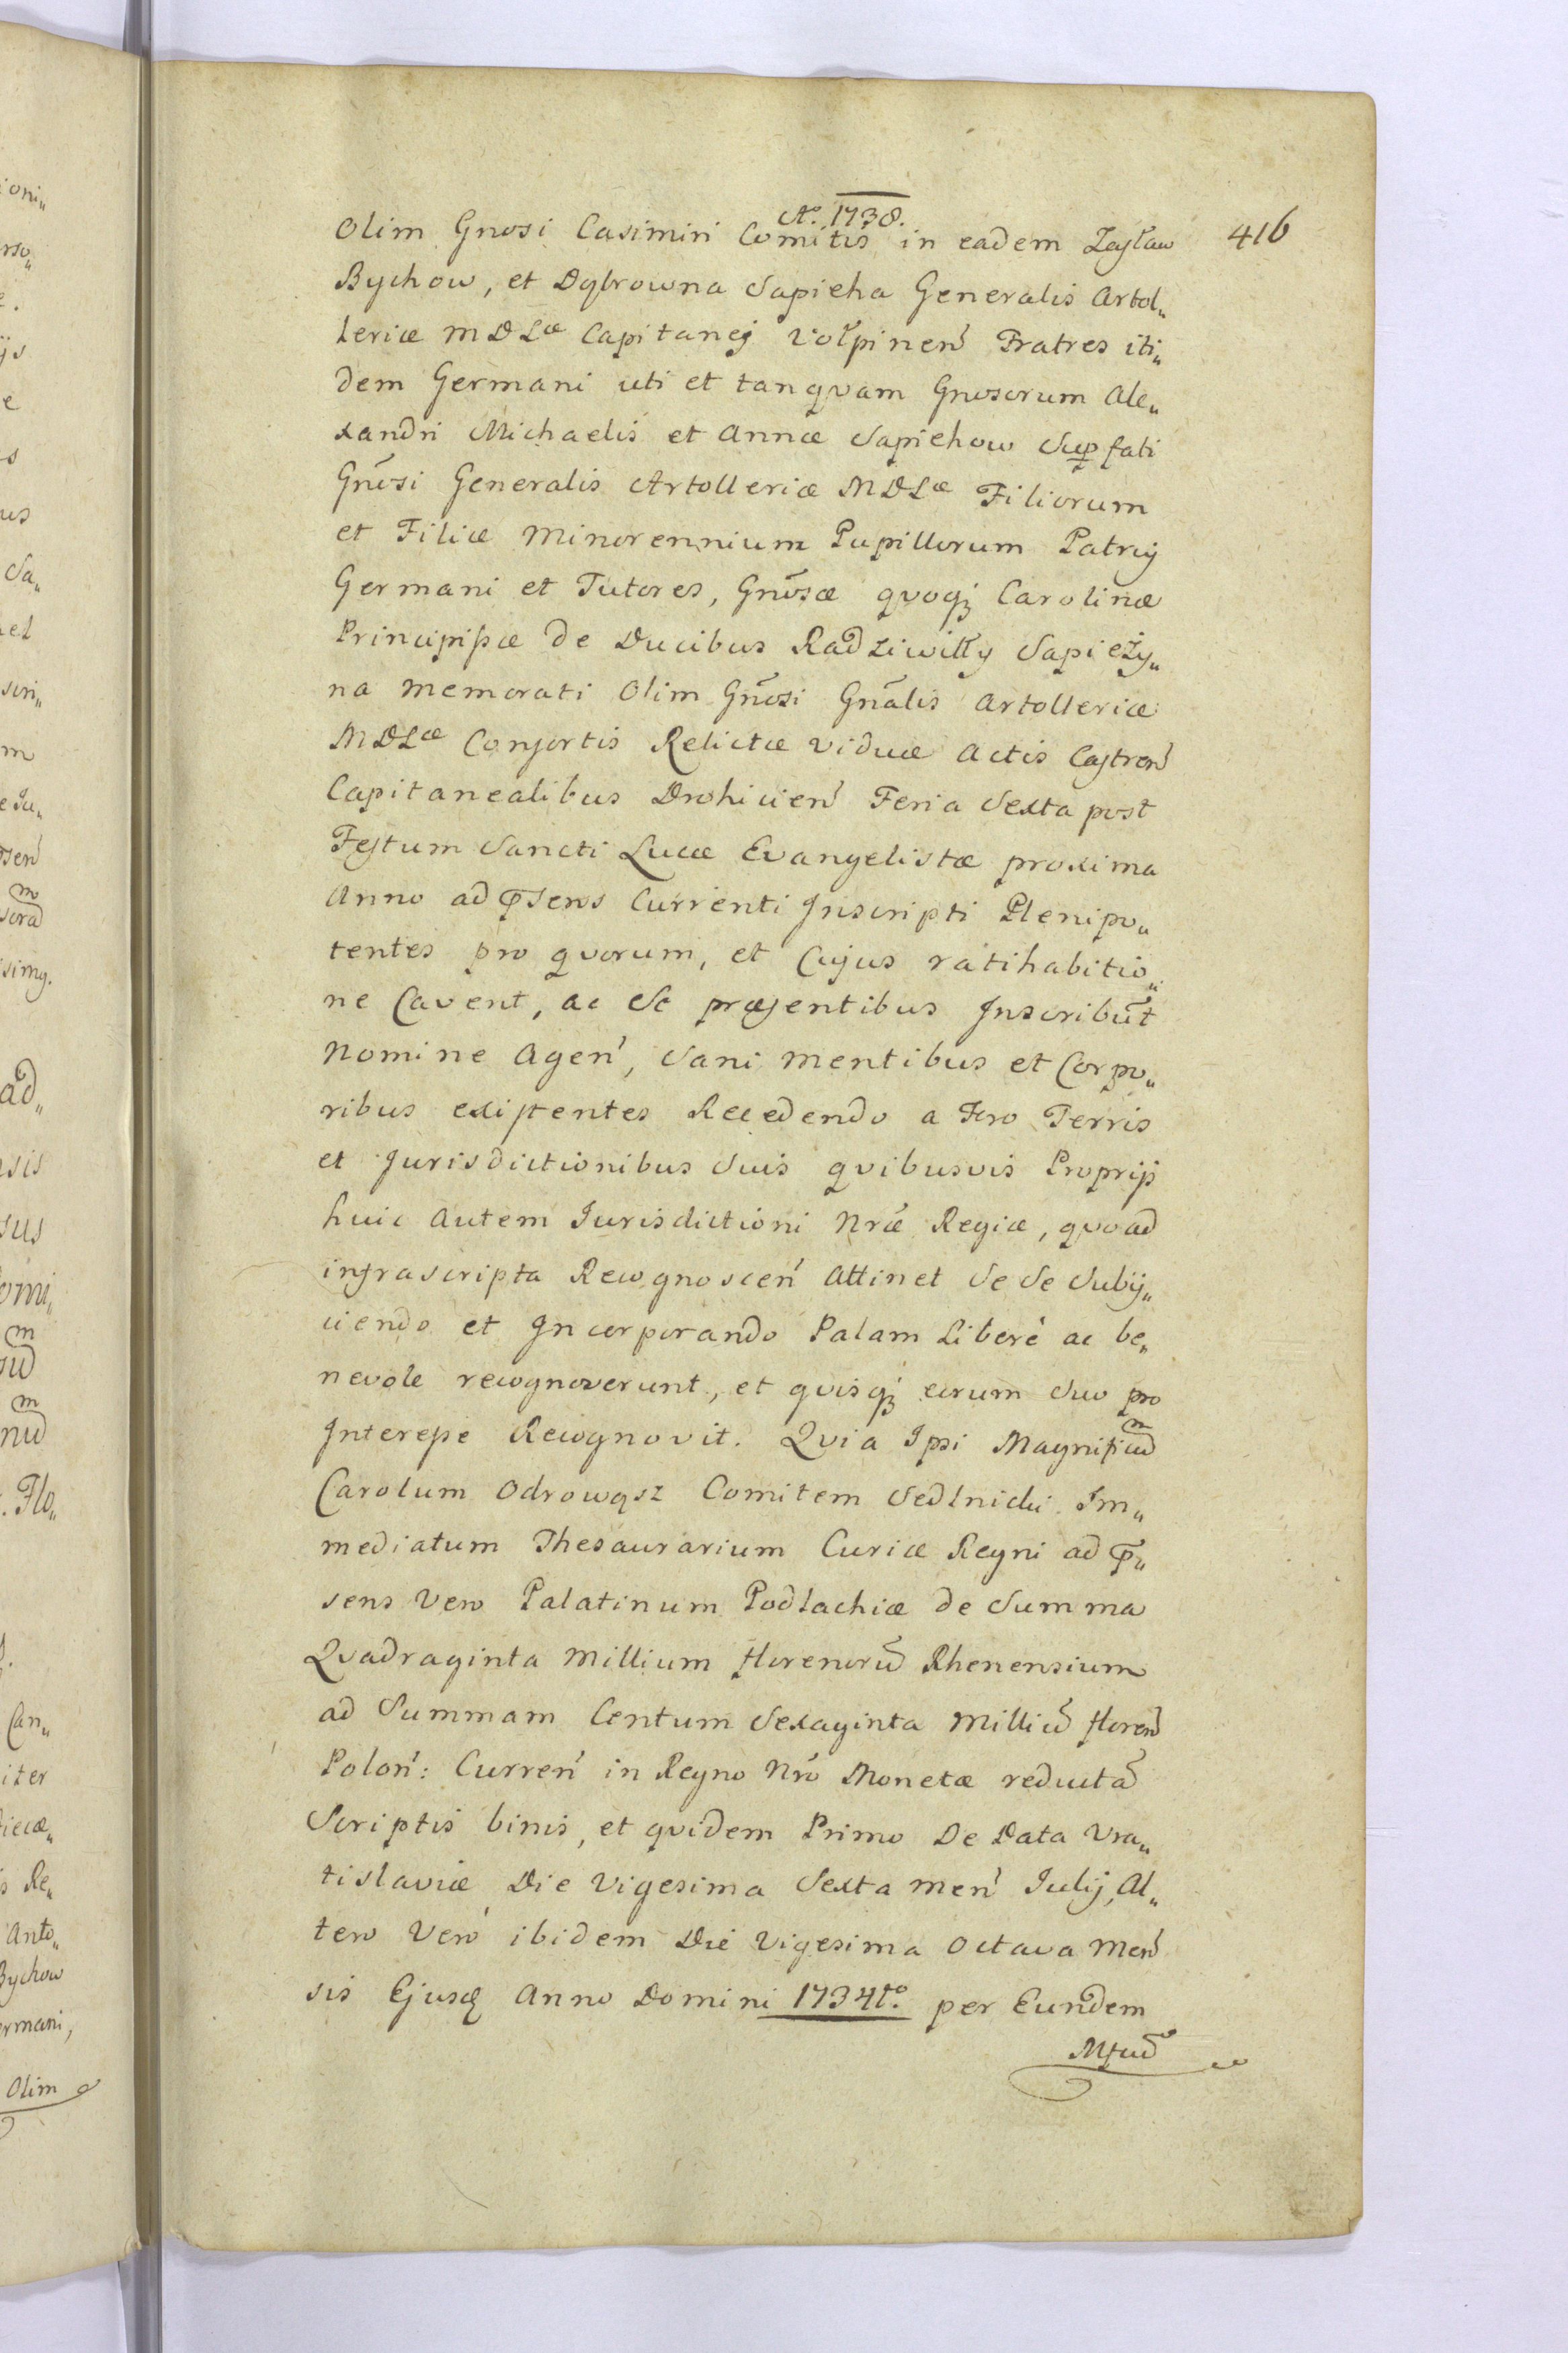 Aº. 1738.
416
Olim Gnosi Casimiri Comitis in eadem Zasław
Bychow, et Dąbrowna Sapieha Generalis Artol„
leriæ MDLæ Capitanej Wołpinen̄ Fratres iti„
dem Germani uti et tanqvam Gnosorum Ale„
xandri Michaelis et Annæ Sapiehow Supfati
Gn̄osi Generalis Artolleriæ MDLæ Filiorum
et Filiæ Minorennium Pupillorum Patruj
Germani et Tutores, Gn̄osæ qvoqꝫ Carolinæ
Principissæ de Ducibus Radziwiłły Sapieży„
na Memorati Olim Gn̄osi Gn̄alis Artolleriæ
MDLæ Consortis Relictæ Viduæ Actis Castren̄
Capitanealibus Drohicien̄ Feria Sexta post
Festum Sancti Lucæ Evangelistæ proxima
Anno ad p̄sens Currenti Inscripti Plenipo„
tentes pro qvorum, et Cujus ratihabitio„
ne Cavent, ac Se præsentibus Inscribūt
Nomine Agen̄, Sani Mentibus et Corpo„
ribus existentes Recedendo a Foro Terris
et Jurisdictionibus Suis qvibusvis Proprijs
huic Autem Jurisdictioni Nræ Regiæ, qvoad
infrascripta Recognoscen̄ Attinet Se Se Subij„
ciendo et Incorporando Palam Liberè ac be„
nevole recognoverunt, et qvisqꝫ eorum Suo pro
Interesse Recognovit. Qvia Ipsi Magnificum
Carolum Odrowąsz Comitem Sedlnicki Im„
mediatum Thesaurarium Curiæ Regni ad p̄„
sens Vero Palatinum Podlachiæ de Summa
Qvadraginta Millium florenorū Rhenensium
ad Summam Centum Sexaginta Milliū floren̄
Polon̄: Curren̄ in Regno Nrō Monetæ reductā
Scriptis binis, et qvidem Primo De Data Vra„
tislaviæ Die Vigesima Sexta Men̄ Julij, Al„
tero Vero ibidem Die Vigesima Octava Men̄
sis Ejusd Anno Domini 1734tº. per Eundem
Mfcū